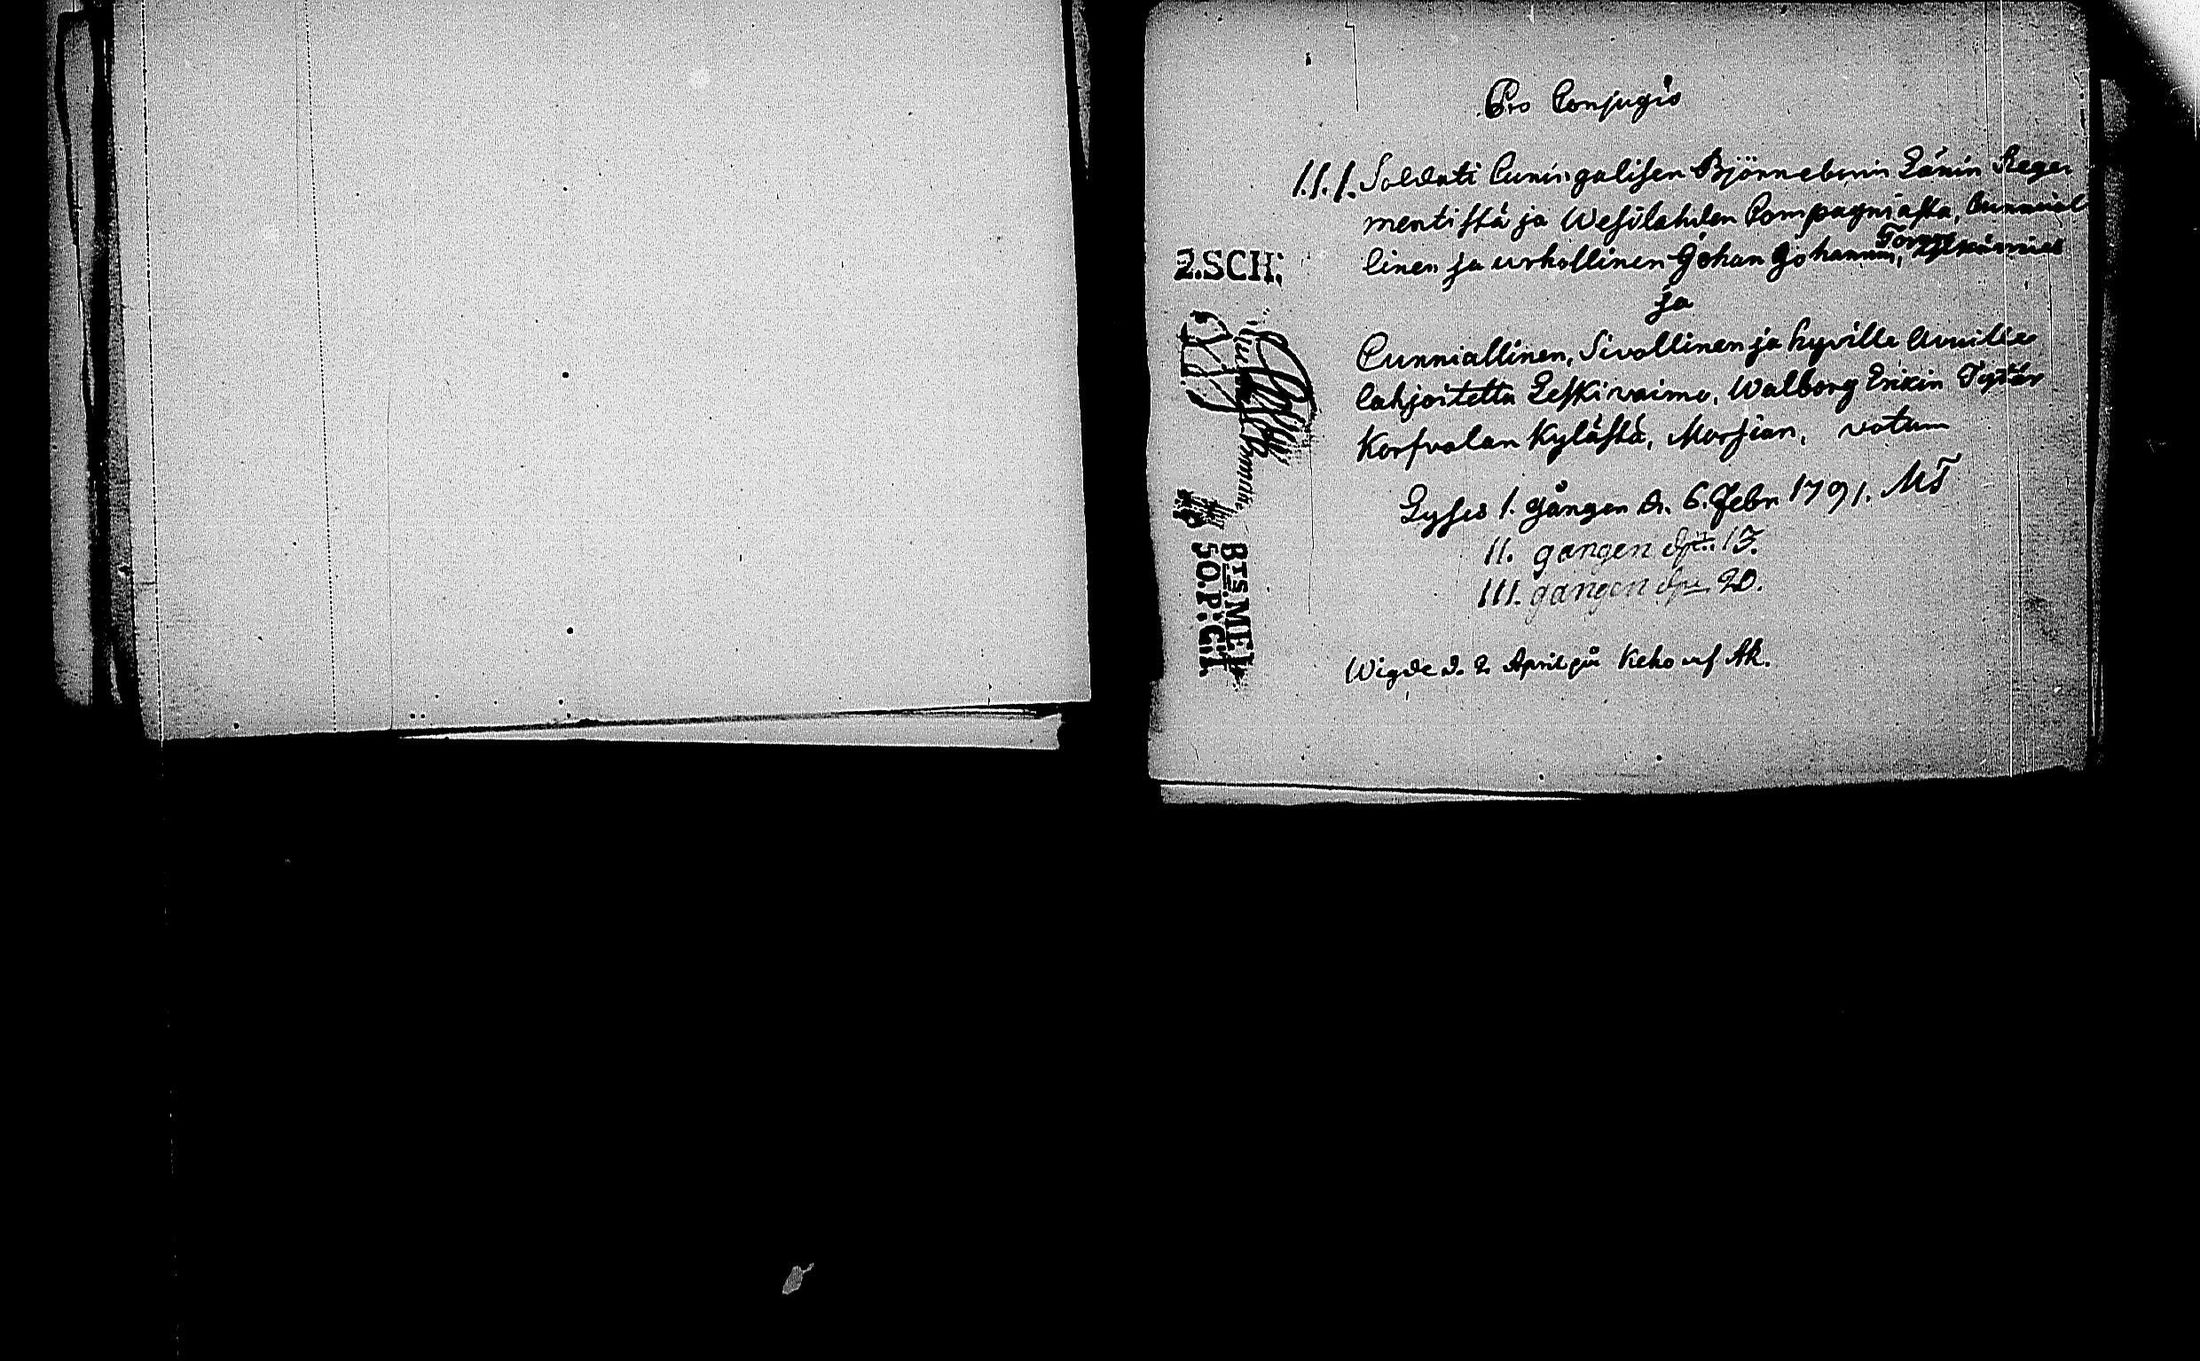 Pro Conjugio
I.I.I. Soldati Cuningalisen Björneburin Länin Rege
mentistä ja Wesilahden Compagniasta, Cunnial
linen ja urhollinen Johan Johannin,
ja
Cunniallinen, Sivollinen ja hyvillä Avuilla
lahjoitettu Leskivaimo, Walborg Erikin Tytär
Korfvolan Kylästä, Morsian, votum
Lyses 1. gången d. 6. Febr 1791. MT
II. gangen 13.
III. gangen 20.
Wigde d. 2 April på Keho
2.SCH;
BTS.ME
50.P.